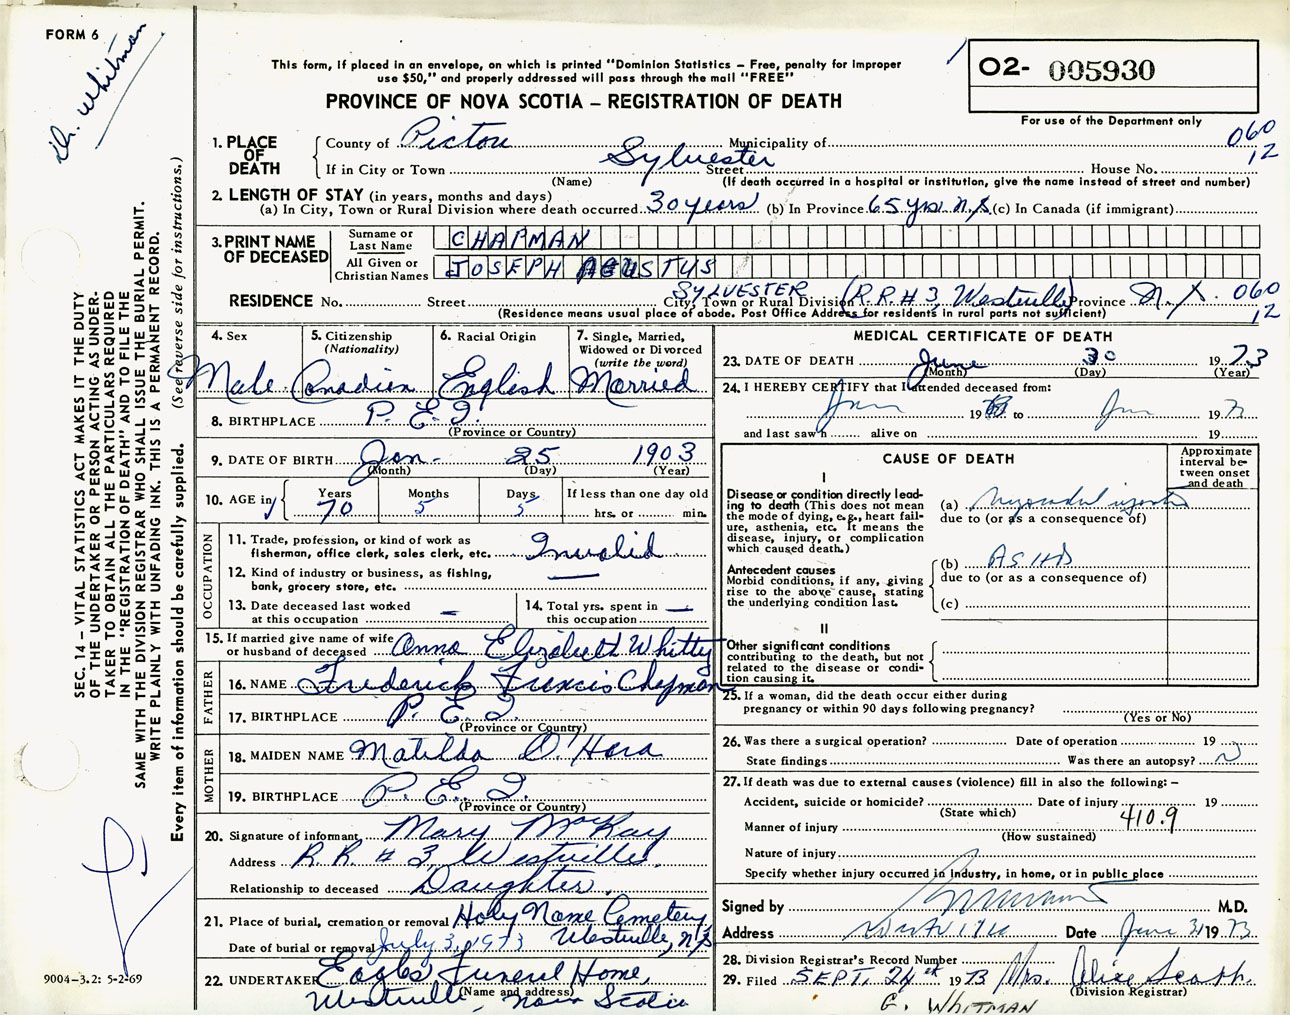 FORM 6
Dr. Whitman
This form, if placed in an envelope, on which is printed "Dominion Statistics – Free, penalty for improper
use $50," and properly addressed will pass through the mail "FREE"
O2- 005930
For use of the Department only
PROVINCE OF NOVA SCOTIA – REGISTRATION OF DEATH
060
12
1. PLACE OF DEATH
County of Pictou Municipality of
If in City or Town Sylvester Street House No.
(Name) (If death occurred in a hospital or institution, give the name instead of street and number)
2. LENGTH OF STAY (in years, months and days)
(a) In City, Town or Rural Division where death occurred 30 years (b) In Province 65 yrs N.S. (c) In Canada (if immigrant)
3. PRINT NAME OF DECEASED
Surname or Last Name CHAPMAN
All Given or Christian Names JOSEPH AGUSTUS
RESIDENCE No. Street SYLVESTER City, Town or Rural Division (R.R. # 3, Westville) Province N.S. 060
12
(Residence means usual place of abode. Post Office Address for residents in rural parts not sufficient)
4. Sex
Male
5. Citizenship
(Nationality)
Canadian
6. Racial Origin
English
7. Single, Married,
Widowed or Divorced
(write the word)
Married
8. BIRTHPLACE P.E.I.
(Province or Country)
9. DATE OF BIRTH Jan. 25 1903
(Month) (Day) (Year)
10. AGE in
Years 70
Months 5
Days 5
If less than one day old
hrs. or min.
OCCUPATION
11. Trade, profession, or kind of work as
fisherman, office clerk, sales clerk, etc. Invalid
12. Kind of industry or business, as fishing,
bank, grocery store, etc. —
13. Date deceased last worked
at this occupation –
14. Total yrs. spent in
this occupation —
15. If married give name of wife
or husband of deceased Anna Elizabeth Whitty
FATHER
16. NAME Frederick Francis Chapman
17. BIRTHPLACE P.E.I.
(Province or Country)
MOTHER
18. MAIDEN NAME Matilda O'Hara
19. BIRTHPLACE P.E.I.
(Province or Country)
20. Signature of informant Mary MacKay
Address R.R. # 3, Westville.
Relationship to deceased Daughter.
21. Place of burial, cremation or removal Holy Name Cemetery
Westville, N.S.
Date of burial or removal July 3, 1973
22. UNDERTAKER Eagles Funeral Home,
(Name and address)
Westville, Nova Scotia
MEDICAL CERTIFICATE OF DEATH
23. DATE OF DEATH June 30 1973
(Month) (Day) (Year)
24. I HEREBY CERTIFY that I attended deceased from:
19 to 19
and last saw h alive on 19
CAUSE OF DEATH
Approximate interval between onset and death
I
Disease or condition directly leading to death (This does not mean the mode of dying, e.g., heart failure, asthenia, etc. It means the disease, injury, or complication which caused death.)
(a)
due to (or as a consequence of)
Antecedent causes
Morbid conditions, if any, giving rise to the above cause, stating the underlying condition last.
(b) ASHD
due to (or as a consequence of)
(c)
II
Other significant conditions
contributing to the death, but not related to the disease or condition causing it.
25. If a woman, did the death occur either during
pregnancy or within 90 days following pregnancy?
(Yes or No)
26. Was there a surgical operation? Date of operation 19
State findings Was there an autopsy? N
27. If death was due to external causes (violence) fill in also the following: –
Accident, suicide or homicide? Date of injury 19
(State which)
Manner of injury 410.9
(How sustained)
Nature of injury
Specify whether injury occurred in industry, in home, or in public place
Signed by M.D.
Address Westville Date June 31 1973
28. Division Registrar's Record Number
29. Filed SEPT. 24th 1973 Mrs. Alice
(Division Registrar)
G. WHITMAN
SEC. 14 – VITAL STATISTICS ACT MAKES IT THE DUTY
OF THE UNDERTAKER OR PERSON ACTING AS UNDER-
TAKER TO OBTAIN ALL THE PARTICULARS REQUIRED
IN THE "REGISTRATION OF DEATH" AND TO FILE THE
SAME WITH THE DIVISION REGISTRAR WHO SHALL ISSUE THE BURIAL PERMIT.
WRITE PLAINLY WITH UNFADING INK. THIS IS A PERMANENT RECORD.
Every item of information should be carefully supplied. (See reverse side for instructions.)
9004-3.2: 5-2-69